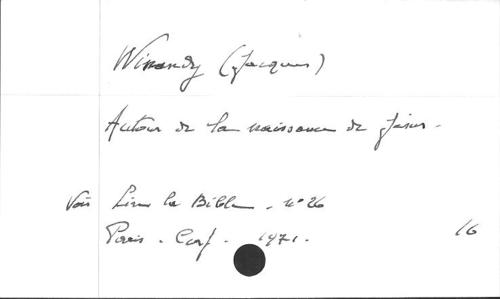 Winandy (Jacques)
Autour de la naissance de Jésus -
Voir Lire la Bible - n° 26
Paris - Cerf - 1971.
16